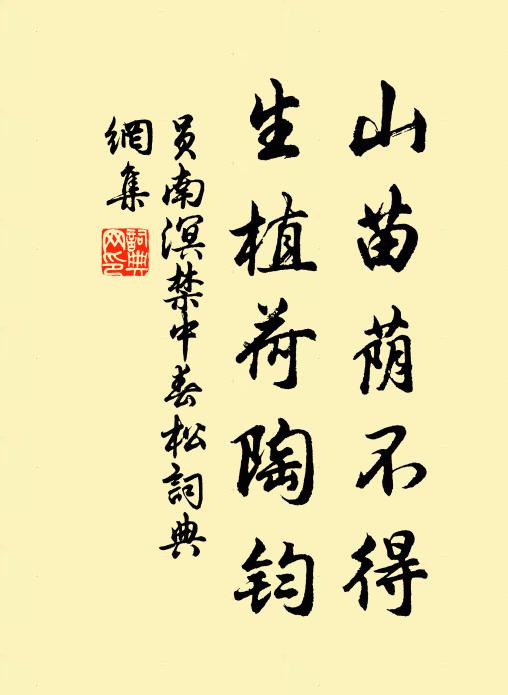 山苗荫不得
生植荷陶钧
员南溟禁中春松詞典
網集
詞典網印